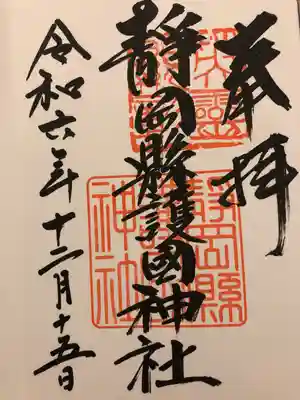 奉拝
靜岡縣護國神社
令和六年十二月十五日
靜岡縣
護國
神社